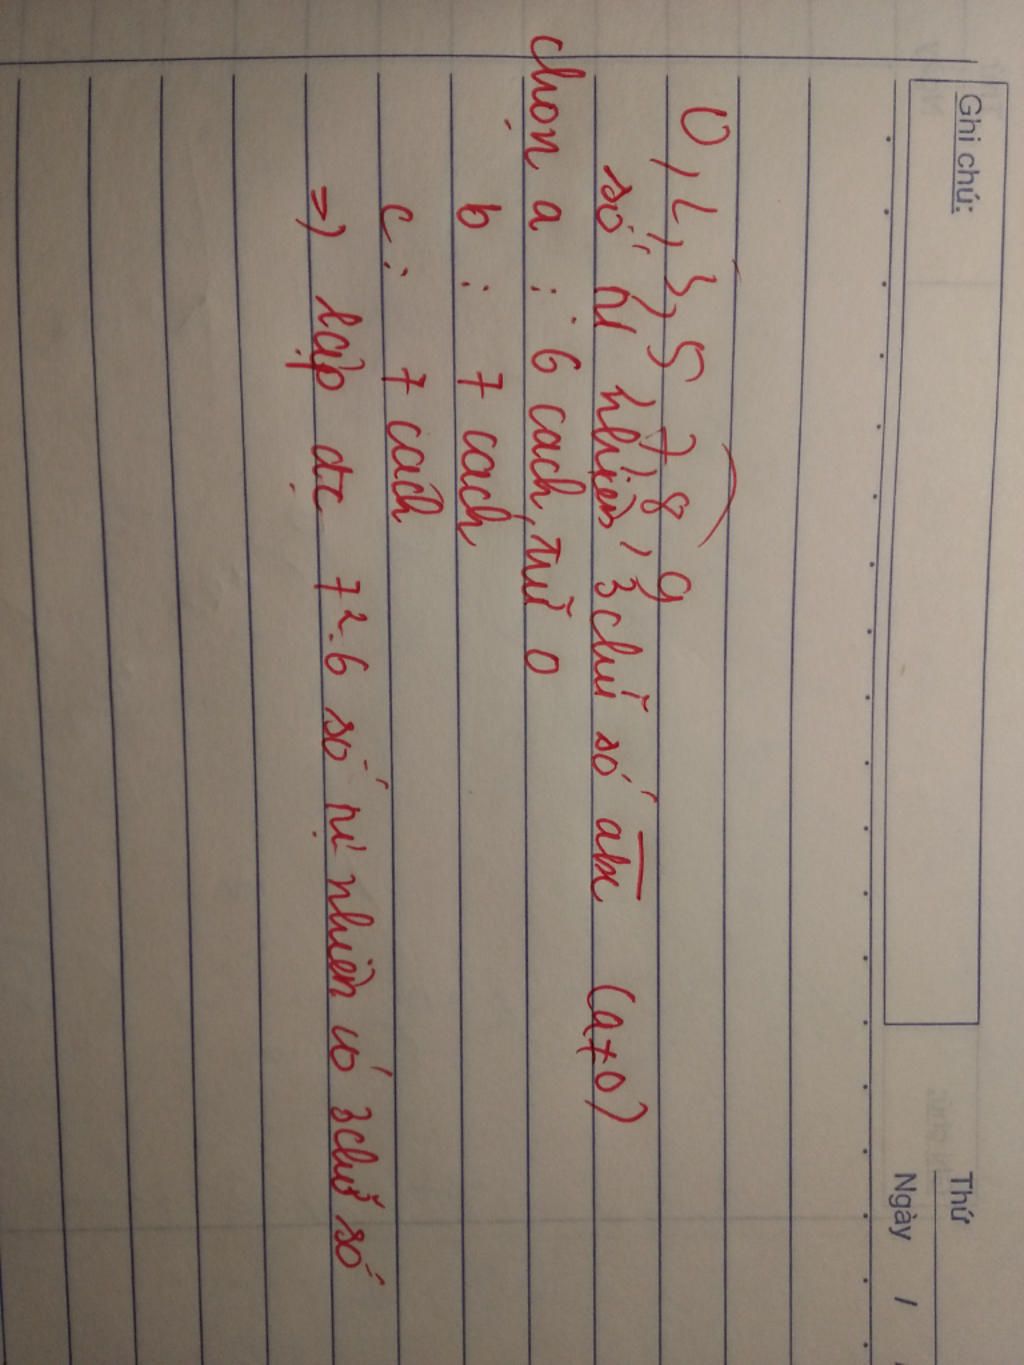 Ghi chú:
Thứ
Ngày /
0, 2, 3, 5 7, 8, 9
số tự nhiên 3 chữ số abc (a≠0)
chọn a : 6 cach, trừ 0
b : 7 cach
c : 7 cách
=) lập đc 7². 6 số tự nhiên có 3 chữ số